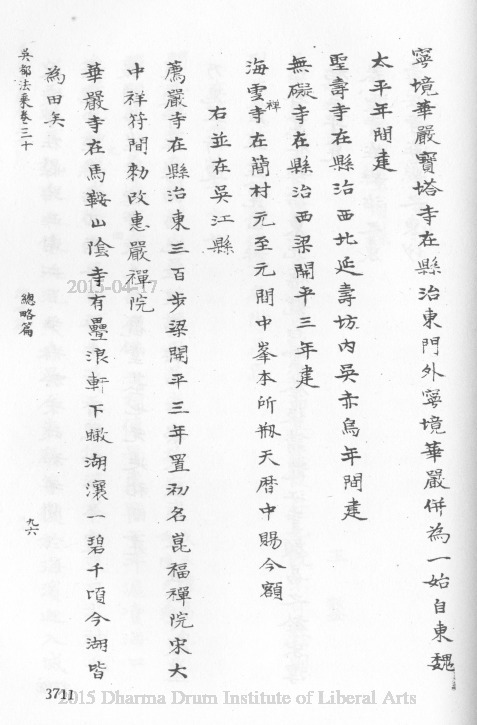 寧境華嚴寶塔寺在縣治東門外寧境華嚴併為一始自東魏
太平年間建
聖壽寺在縣治西北延壽坊內吳赤烏年間建
無礙寺在縣治西梁開平三年建
海雲禪寺在簡村元至元間中峯本所剏天曆中賜今額
右並在吳江縣
薦嚴寺在縣治東三百步梁開平三年置初名崑福禪院宋大
中祥符間勑改惠嚴禪院
華嚴寺在馬鞍山陰寺有疊浪軒下瞰湖瀼一碧千頃今湖皆
為田矣
吳都法乘卷三十
總略篇
九六
3711
2013-04-17
2015 Dharma Drum Institute of Liberal Arts